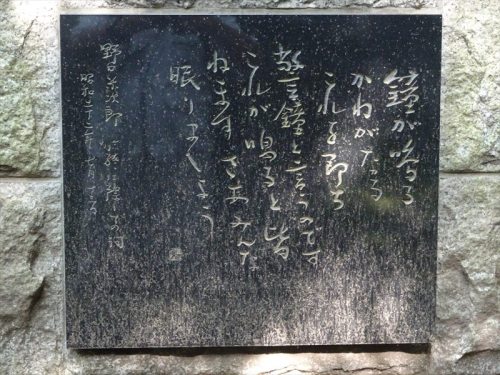 鐘が鳴る
かねがなる
これを即ち
警鐘と言うのです
これが鳴ると皆
ねます さあみんな
眠りませう
野口米次郎
昭和二十二年七月